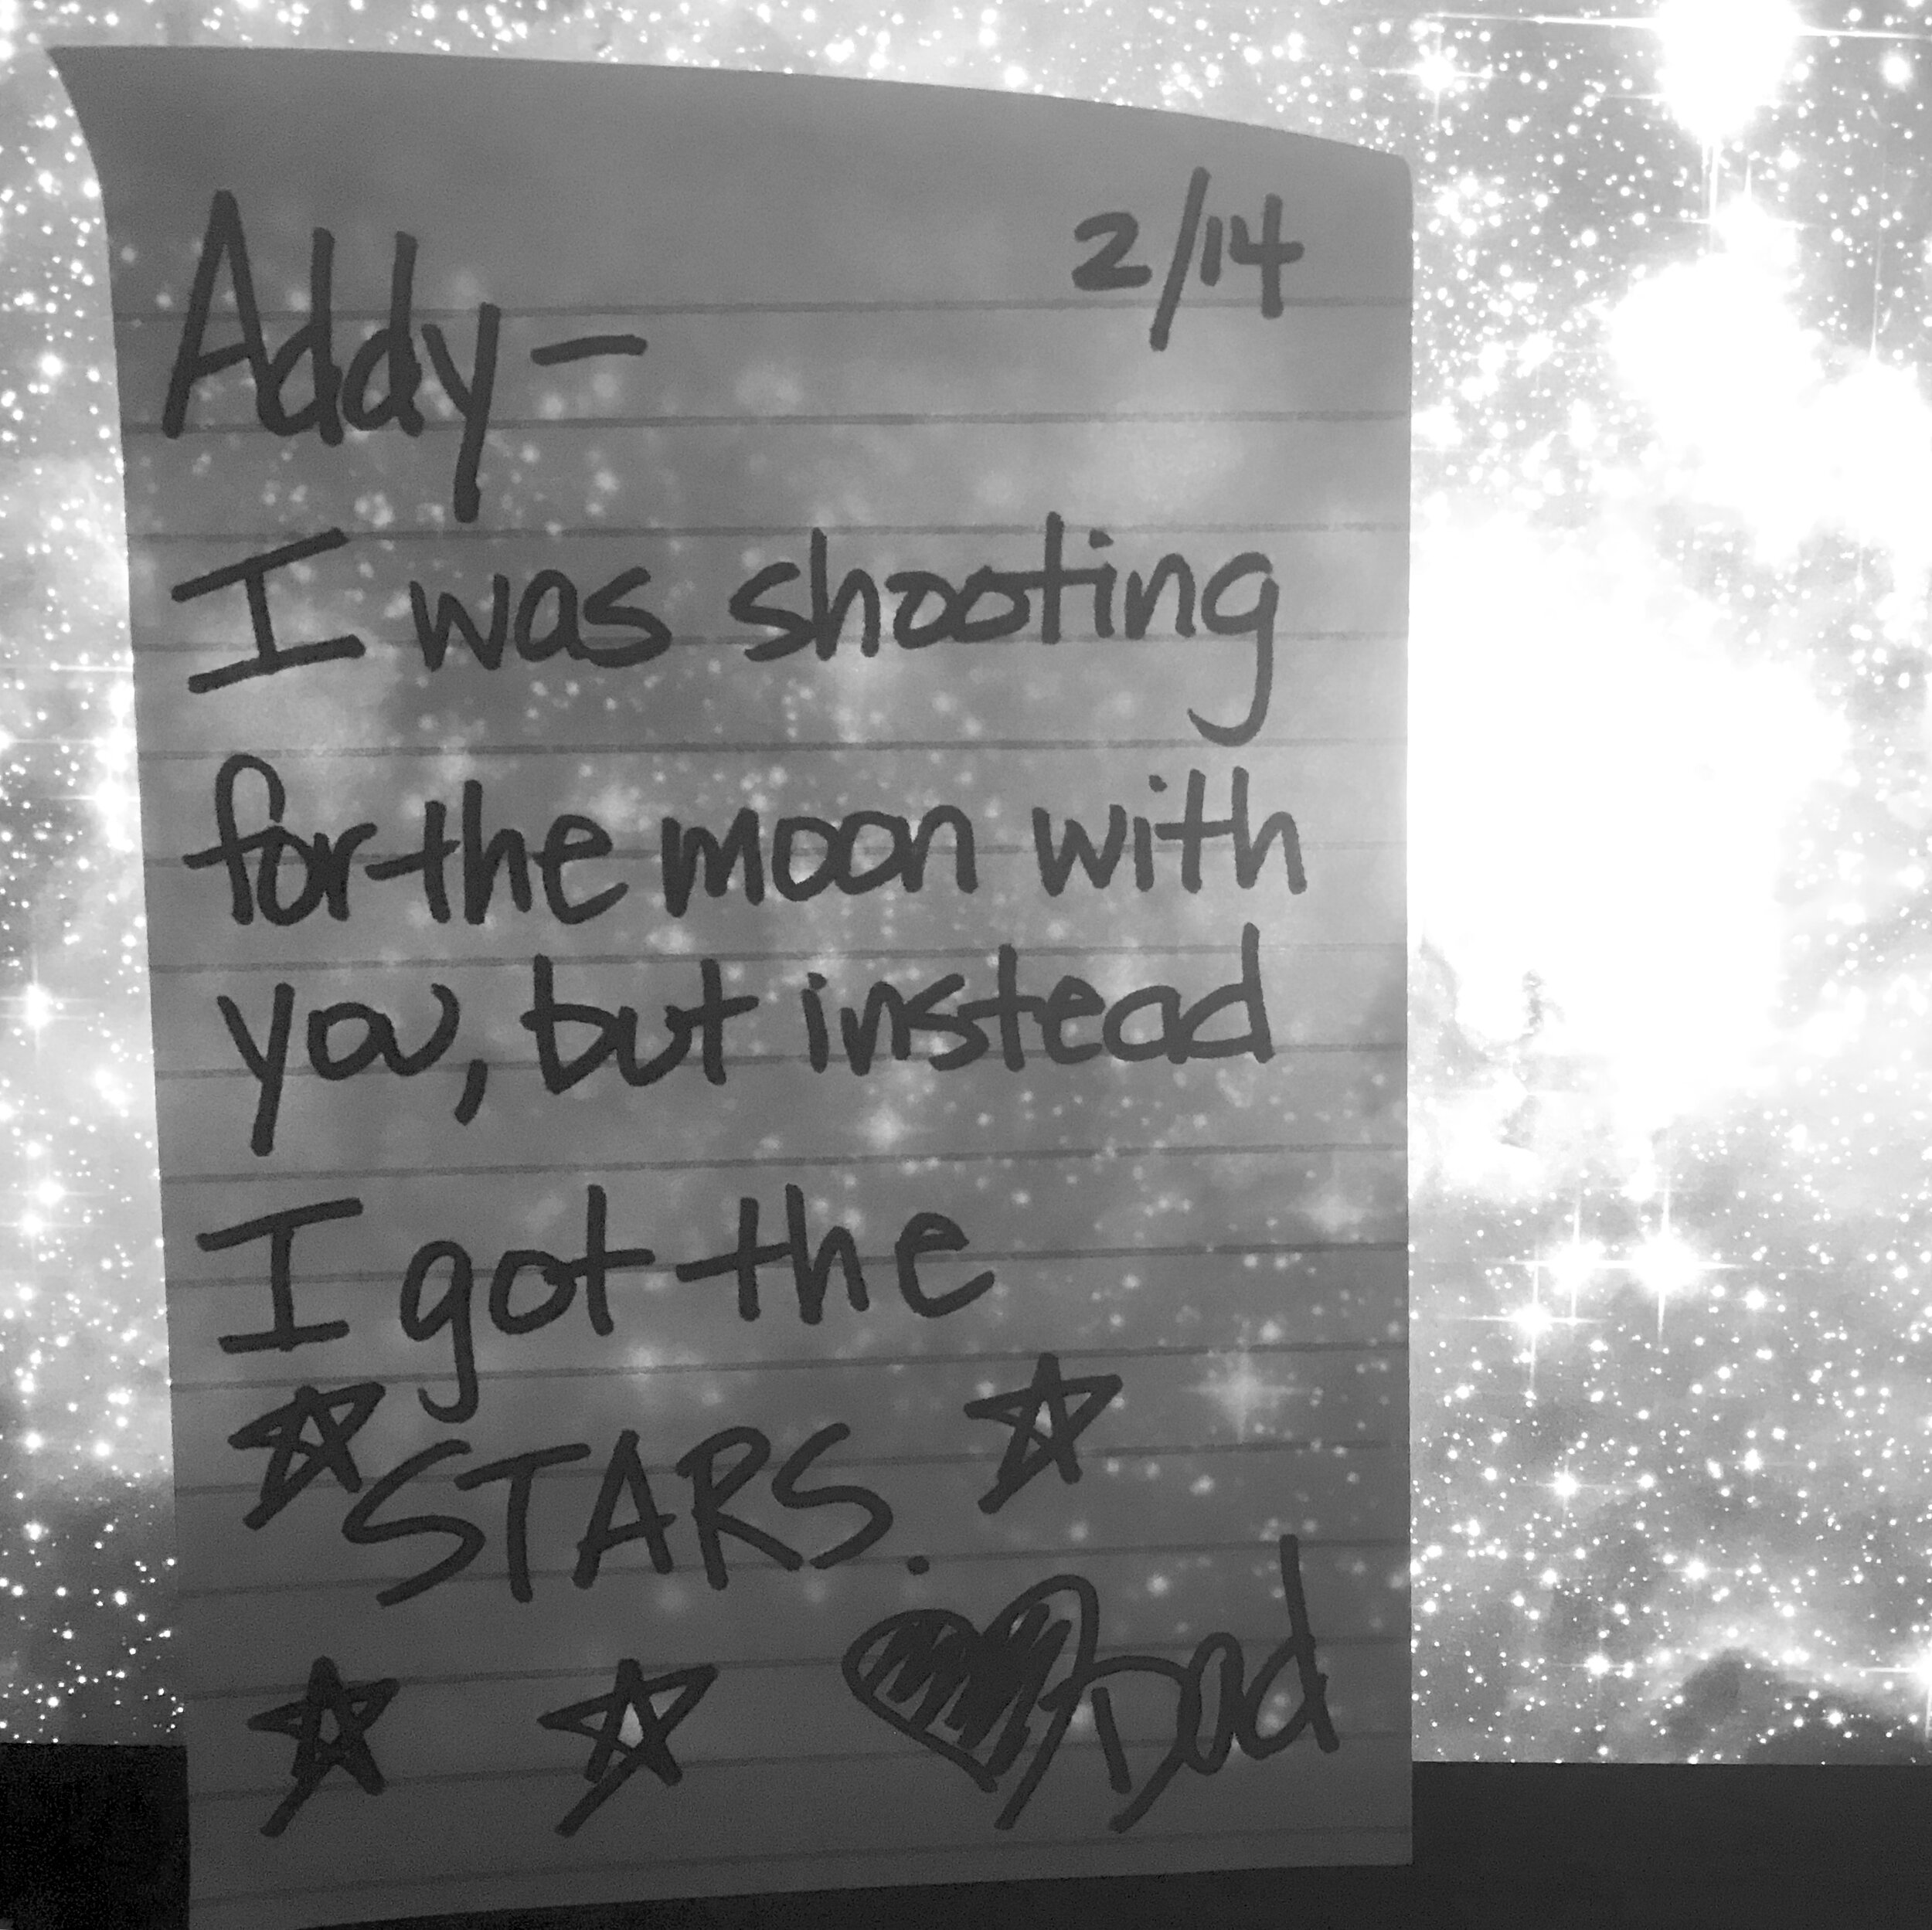 2/14
Addy-
I was shooting
for the moon with
you, but instead
I got the
STARS.
Dad